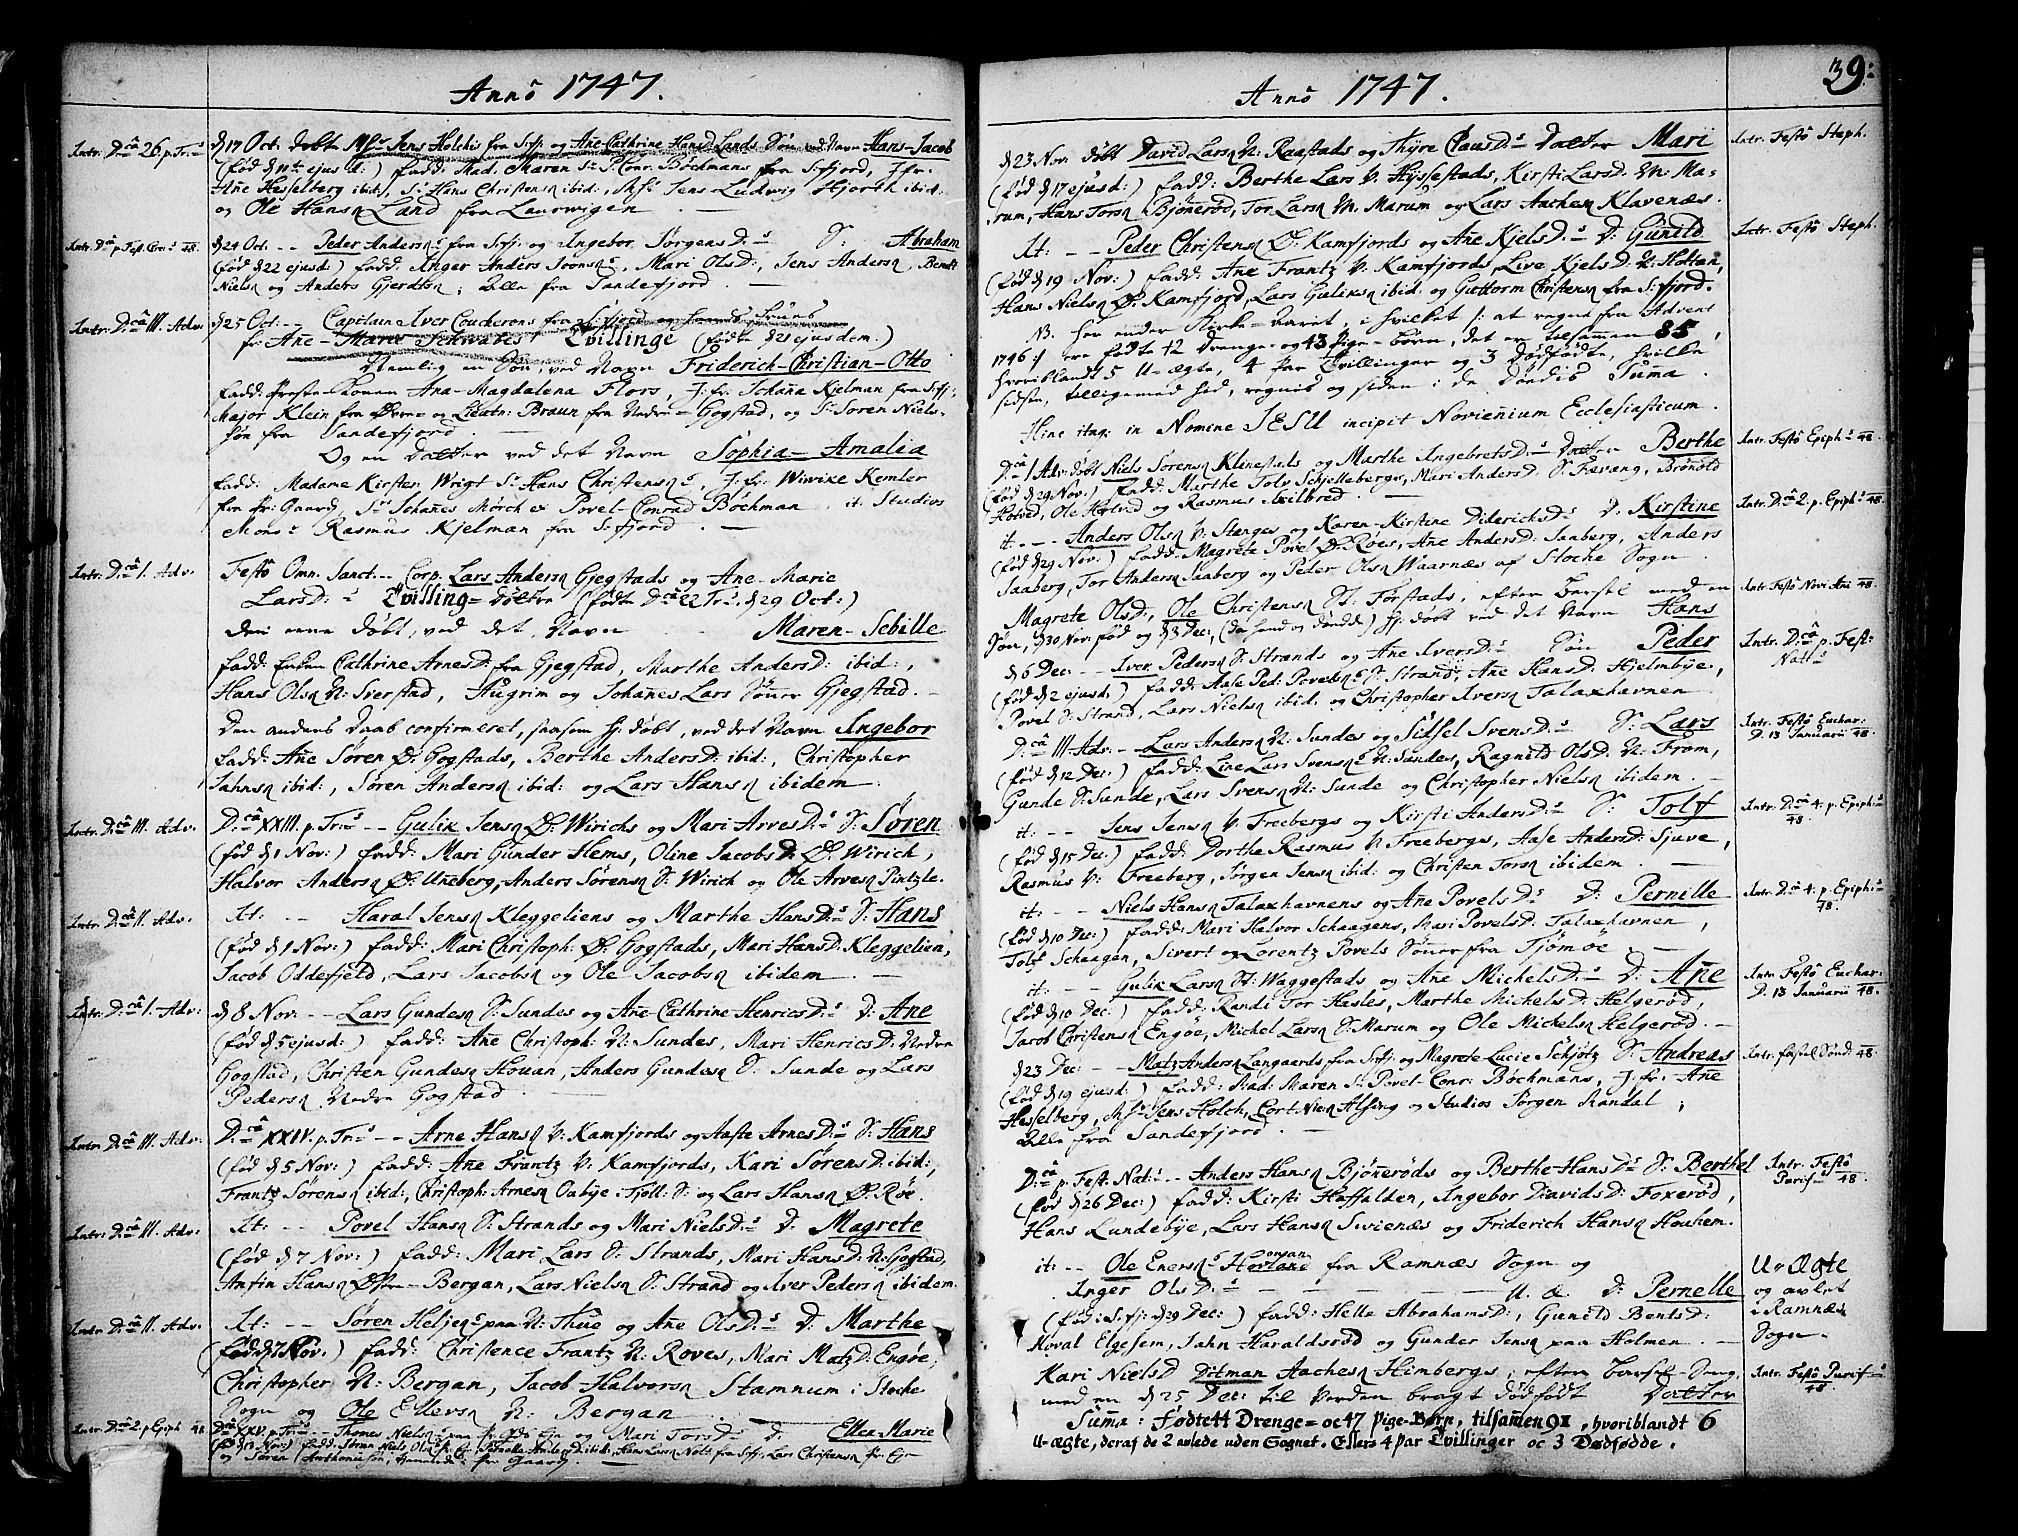 Anno 1747.
Intr. D:ca 26. p. Tr:s
d 17 Oct. døbt M:sr Jens Holchs fra S:fj: og Ane Cathrine Hans D. Lands Søn ved Navn Hans-Jacob
(fød d 11te ejusd:) fadd: Mad. Maren S:r Conr. Bøchmans fra S:fjord, J:fr:
Ane Hesselberg ibid:, S:r Hans Christens ibid:, M:sr Jens Ludwig Hjorth ibid:
og Ole Hans Land fra Laurwigen.
d 24 Oct. -- Peder Anders fra S:fj: og Ingebor Jørgens D:s S: Abraham
(fød d 22 ejusd:) fadd: Inger Anders Joens, Mari Ols D:, Jens Anders, Bendt
Niels og Anders Gjerdts, alle fra Sandefjord.
Intr. D:ca III. Adv.
d 25 Oct. -- Capitain Iver Couckerons fra S:fjord og
fr: Ane-Maria Schwartz Tvillinge (fødte d 21 ejusdem.)
Nemlig en Søn, ved Navn Friderich-Christian-Otto
fadd: Præste-Konen Ana-Magdalena Flors, J:fr: Johana Kjelman fra S:fj:
Major Klein fra Øvre- og Lieutn: Braun fra Nedre-Gogstad, og S:r Søren Niels-
søn fra Sandefjord
Og en Datter ved det Navn Sophia-Amalia
fadd: Madame Kirsten Wrigt S:r Hans Christens, J:fr: Wivike Kemler
fra Pr: Gaard, S:r Johanes Mørch ex Povel-Conrad Bøchman, it: Studios
Mons:r Rasmus Kjelman fra S:fjord.
Intr. D:ca I. Adv.
Festo Omn. Sanct. -- Corp. Lars Anders Gjegstads og Ane-Marie
Lars D:s Tvilling-døttre (fødte D:ca 22 Tr:s d 29 Oct:)
den ene døbt, ved det Navn Maren-Sebille
fadd: Enken Cathrine Arnes D: fra Gjegstad, Marthe Anders D: ibid:,
Hans Ols N: Sverstad, Augrim og Johanes Lars Sønner Gjegstad.
Den andens Daab confirmeret, saasom hj: døbt, ved det Navn Ingebor
fadd: Ane Søren Ø: Gogstads, Berthe Anders D: ibid:, Christopher
Jahns ibid:, Søren Anders ibid: og Lars Hans ibidem.
Intr. D:ca III. Adv.
D:ca XXIII. p. Tr:s -- Gulik Jens Ø: Wirichs og Mari Arves D:s S: Søren
(fød d 1 Nov:) fadd: Mari Gunder Hems, Oline Jacobs D: Ø: Wirich,
Halvor Anders Ø: Uneberg, Anders Sørens S: Wirich og Ole Arves Pintzle.
Intr. D:ca II. Adv.
It: -- Haral Jens Kleggeliens og Marthe Hans D:s S: Hans
(fød d 1 Nov:) fadd: Mari Christoph: Ø: Gogstads, Mari Hans D: Kleggelien,
Jacob Oddefjeld, Lars Jacobs og Ole Jacobs ibidem.
Intr. D:ca I. Adv:
d 8 Nov: -- Lars Gundes S: Sundes og Ane-Cathrine Henrics D:s D: Ane
(fød d 5 ejusd:) fadd: Ane Christoph: N: Sundes, Mari Henrics D: Nedre
Gogstad, Christen Gundes Houan, Anders Gundes S: Sunde og Lars
Peders Nedre Gogstad
Intr: D:ca III. Adv.
D:ca XXIV. p. Tr:s -- Arne Hans V: Kamfjords og Aaste Arnes D:s S: Hans
(fød d 5 Nov:) fadd: Ane Frantz V: Kamfjords, Kari Sørens D: ibid:,
Frantz Sørens ibid:, Christoph: Arnes Oabye: Tjøll: S: og Lars Hans Ø: Røe.
Intr: D:ca II. Adv.
It: -- Povel Hans S: Strands og Mari Niels D:s D: Magrete
(fød d 7 Nov:) fadd: Mari Lars S: Strands, Mari Hans D: N: Gogstad,
Anfin Hans Østre-Bergan, Lars Niels S: Strand og Iver Peders ibidem.
Intr. D:ca II. Adv:
It: -- Søren Heljes paa N: Thue og Ane Ols D:s D: Marthe
(fød d 7 Nov:) fadd: Christence Frantz N: Roves, Mari Matz D: Engøe,
Christopher N: Bergan, Jacob Halvors Stamnum i Stoche
Sogn og Ole Ellevs N: Bergan
Intr: D:ca 2. p Epiph 48
D:ca XXV. p. Tr:s -- Thomes Niels og Mari Tors D:s D: Ellen-Marie
Anno 1747.
39:
Intr. Festo Steph.
d 23 Nov. døbt David Lars N: Raastads og Thyre Claus D:s Datter Mari
(fød d 17 ejusd:) fadd: Berthe Lars V: Hyssestads, Kirsti Lars D: N: Ma-
rum, Hans Tors Bjønerød, Tor Lars N: Marum og Lars Aaches Klavenæs.
Intr. Festo Steph.
It: -- Peder Christens Ø: Kamfjords og Ane Kjels D:s D: Gunild
(fød d 19 Nov:) fadd: Ane Frantz V: Kamfjords, Live Kjels D: N: Holtan,
Hans Niels Ø: Kamfjord, Lars Guliks ibid: og Guttorm Christens fra S:fjord.
NB. her ender Kirke-Aaret, i hvilket /: at regne fra Advent
1746 :/ ere fødte 42 Drenge- og 43 Pige-børn, det er tilsammen 85,
hvoriblandt 5 U-ægte, 4 par Tvillinger og 3 Dødfødte, hvilke
sidste, tilligemed hid, regnes og siden i de Dødes Suma.
Hinc itaq: in Nomine JESU incipit Novenium Ecclesiasticum.
Intr. Festo Epiph:s 48.
D:ca I Adv: døbt Niels Sørens Klinestads og Marthe Ingebrets D:s Datter Berthe
(fød d 29 Nov:) fadd: Marthe Tolv Schjellebergs, Mari Anders D: S: Fævang, Brønild
Hotved, Ole Hotved og Rasmus Axilbred.
Intr. D:ca 2. p. Epiph:s 48
it: -- Anders Ols V: Stanges og Karen-Kirstine Diderichs D:s D: Kirstine
(fød d 29 Nov:) fadd: Magrete Povel Ø: Røes, Ane Anders D: Saaberg, Anders
Saaberg, Tor Anders Saaberg og Peder Ols Waarnæs af Stoche Sogn.
Intr. Festo Novi Ani 48
Magrete Ols D:, Ole Christens St: Førstads, efter Barsel med en
Søn, d 30 Nov: fød og d 3 Dec:, (da hand og døde) hj: døbt ved det Navn Hans
Intr. D:ca p. Fest:
Nat:s
d 6 Dec: -- Iver Peders S: Strands og Ane Ivers D:s Søn Peder
(fød d 2 ejusd:) fadd: Aase Ped: Povels S: Strand, Ane Hans D: Hjelmbye,
Povel S: Strand, Lars Niels ibid. og Christopher Ivers Talaxhavnen
Intr. Festo Euchar:
D. 13 Januarii 48.
D:ca III Adv. -- Lars Anders N: Sundes og Sidsel Svens D:s S: Lars
(fød d 12 Dec:) fadd: Line Lars Svens N: Sundes, Ragnild Ols D: N: From,
Gunde S: Sunde, Lars Svens N: Sunde og Christopher Niels ibidem.
Intr. D:ca 4: p. Epiph:s
48
it: -- Jens Jens V: Freebergs og Kirsti Anders D:s S: Tolf
(fød d 15 Dec:) fadd: Dorthe Rasmus V: Freebergs, Aase Anders D: Sjuve,
Rasmus V: Freeberg, Jørgen Jens ibid: og Christen Tors ibidem.
Intr. D:ca 4: p. Epiph:s
48.
it: -- Niels Hans Talaxhavnens og Ane Povels D:s D: Pernille
(fød d 10 Dec:) fadd: Mari Halvor Schaagens, Mari Povels D: Talaxhavnen,
Tolf Schaagen, Sivert og Lorentz Povels Sønner fra Tjømøe.
Intr Festo Euchar.
D. 13 Januarii 48.
it: -- Gulik Lars St: Waggestads og Ane Michels D:s D: Ane
(fød d 10 Dec:) fadd: Randi Tor Hasles, Marthe Michels D: Helgerød,
Jacob Christens Engøe, Michel Lars S: Marum og Ole Michels Helgerød.
Intr. fastel. Sønd: 48.
d 23 Dec: -- Matz Anders Langaards fra S:fj: og Magrete Lucie Schjøtz S: Andreas
(fød d 19 ejusd:) fadd: Mad: Maren S:r Povel-Conr: Bøchmans, J:fr: Ane
Hesselberg, M:sr Jens Holch, Cort Alsing og Studios Jørgen Randal,
alle fra Sandefjord.
Intr. Festo
Purif:s 48.
D:ca p. Fest. Nat:s -- Anders Hans Bjønerøds og Berthe-Hans D:s S: Berthel
(fød d 26 Dec:) fadd: Kirsti Haffalden, Ingebor Davids D: Foxerød,
Hans Lundebye, Lars Hans Svienæs og Friderich Hans Houkem.
U-Ægte
og avlet
i Ramnæs
Sogn.
it: -- Ole Eners fra Ramnæs Sogn og
Inger Ols D:s U. æ. D: Pernelle
(fød i S:fj: d 29 Dec:) fadd: Helle Abrahams D:, Gunild Bents D:
Hoval Elgesem, Jahn Haraldsrød og Gunder Jens paa Holmen.
Intr. Festo Purif:s
48
Kari Niels D Ditman Aaches Himbergs, efter Barsel-Seng,
med en d 25 Dec: til Verden bragt dødfødt Datter
Summa: Fødte 44 Drenge- oc 47 Pige-Børn, tilsammen 91, hvoriblandt 6
U-ægte, deraf de 2 avlede uden Sognet. Ellers 4 Par Tvillinger oc 3 Dødfødde.